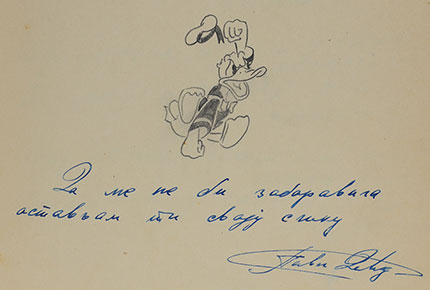 Да ме не би заборавила
остављам ти своју слику